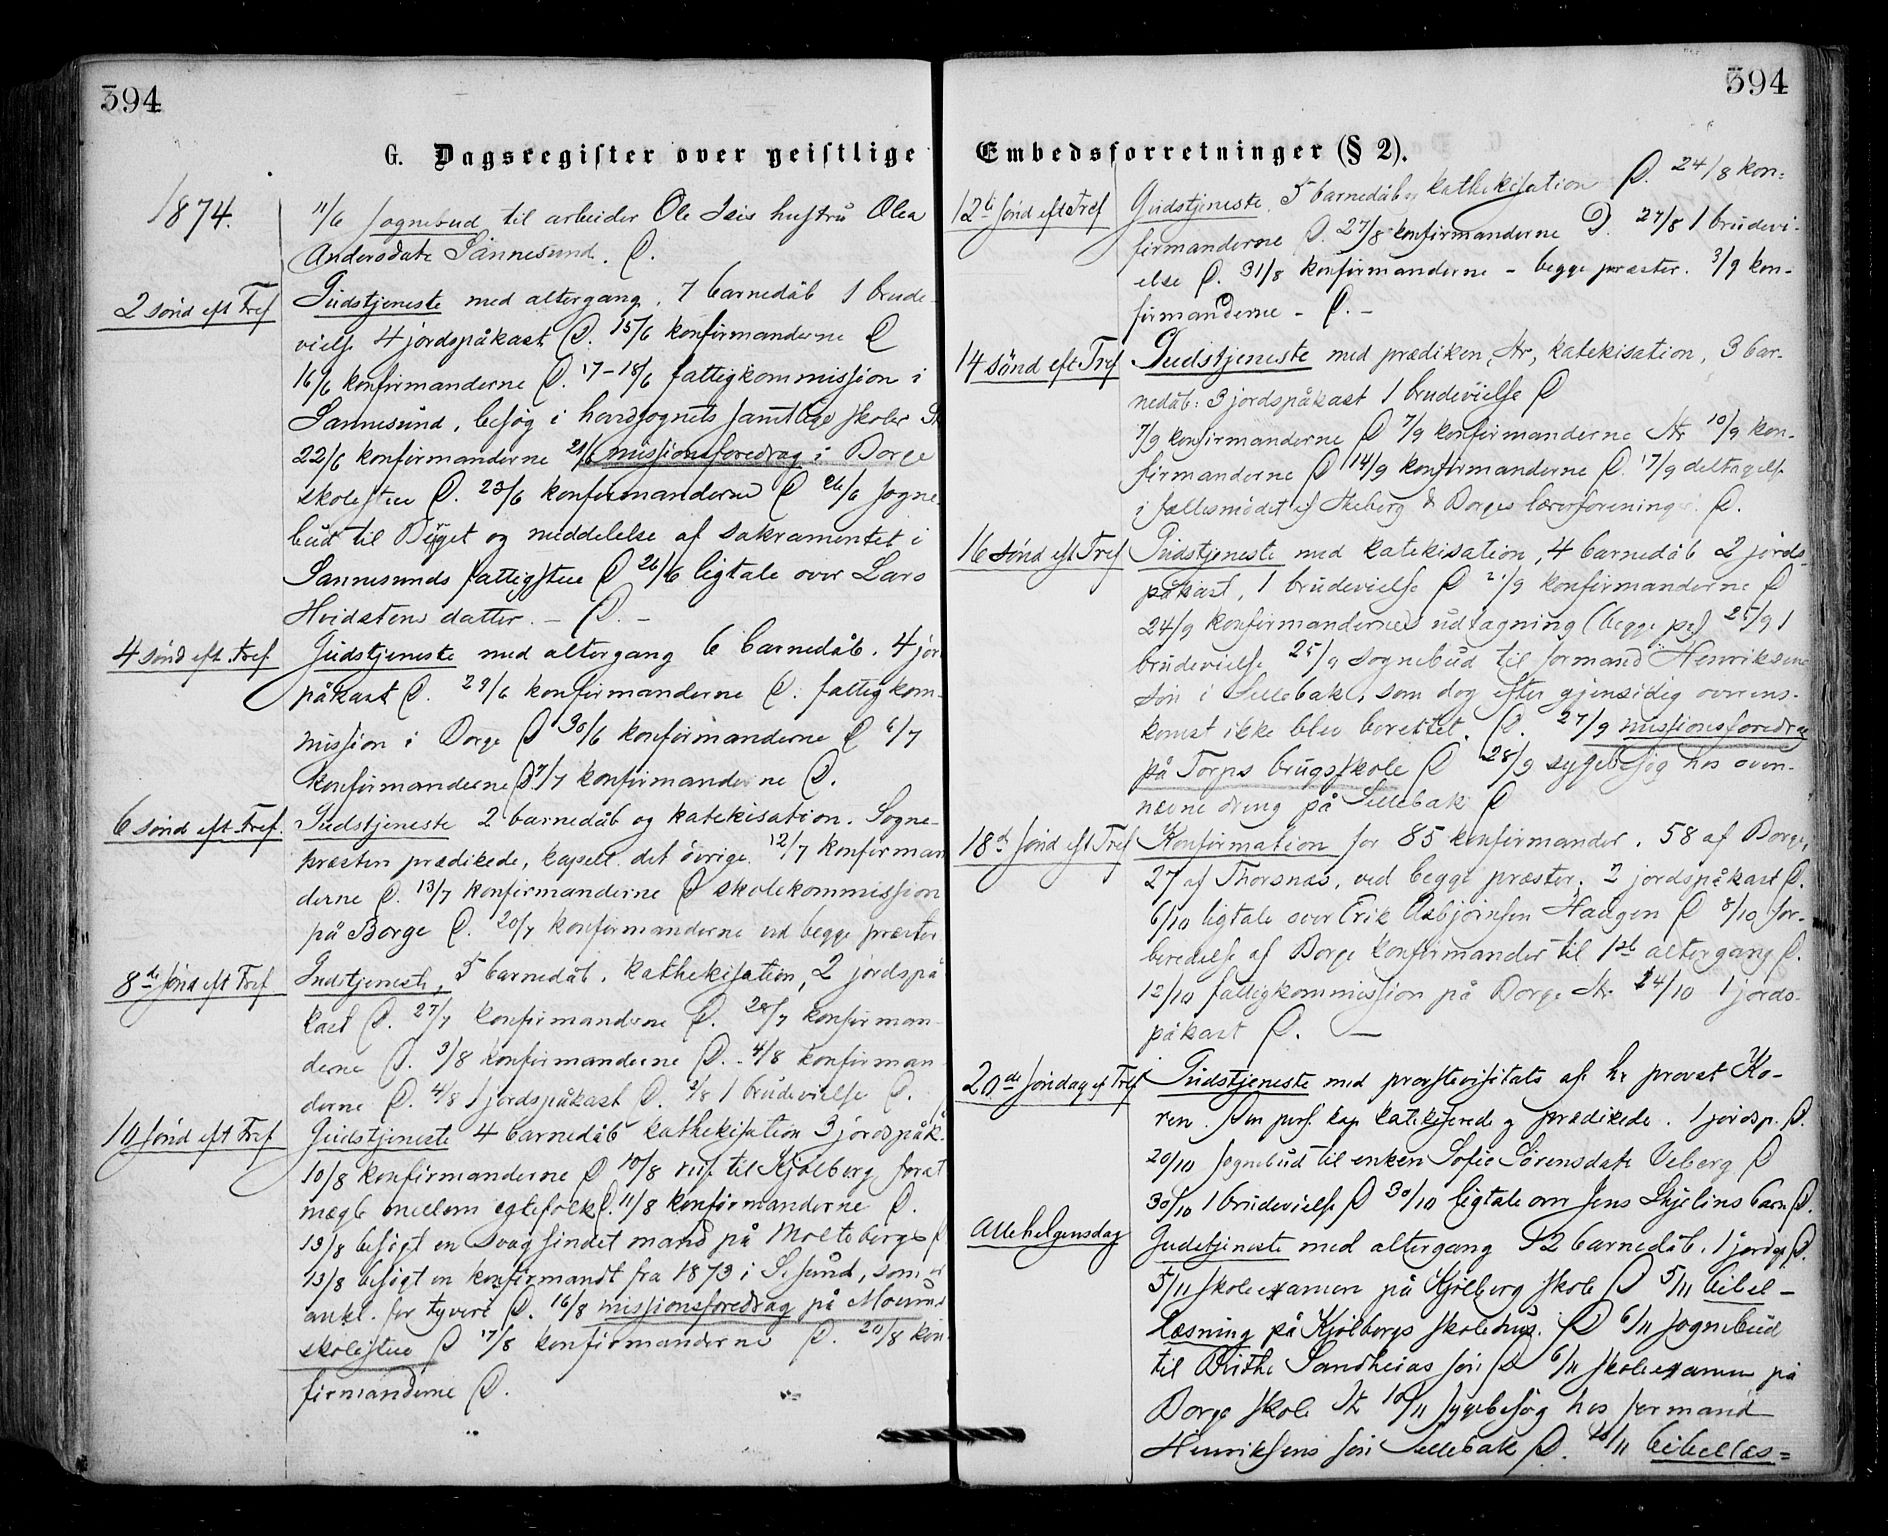 394
394
G. Dagsregister over geistlige Embedsforretninger (§ 2).
1874.
11/6 sognebud til arbeider Ole Isis hustru Olea
Andersdatr Sannesund. P.
2 sönd eft Tref
Gudstjeneste med altergang. 7 barnedåb 1 brude-
vielse 4 jordspåkast P. 15/6 konfirmanderne P
16/6 konfirmanderne P. 17-18/6 fattigkommission i
Sannesund, besög i hovedsognets samtlige skoler
22/6 konfirmanderne 21/6 missionsforedrag i Borge
skolestue P. 23/6 konfirmanderne P 26/6 sogne
bud til og meddelelse af sakramentet i
Sannesunds fattigstue P 26/6 ligtale over Lars
Hvidstens datter. - P. -
4 sönd eft. Tref.
Gudstjeneste med altergang 6 barnedåb. 4 jor
påkast P. 29/6 konfirmanderne P. fattigkom-
mission i Borge P 30/6 konfirmanderne P 6/7
konfirmanderne P 7/7 konfirmanderne P.
6 sönd eft Tref.
Gudstjeneste 2 barnedåb og katekisation. Sogne-
præsten prædikede, kapell. det övrige. 12/7 konfirman
derne P. 13/7 konfirmanderne P skolekommission
på Borge P. 20/7 konfirmanderne ved begge præster
8de sönd eft Tref
Gudstjeneste, 5 barnedåb. kathekisation, 2 jordspå
kast P. 27/7 konfirmanderne P. 28/7 konfirman-
derne P. 3/8 konfirmanderne P. 4/8 konfirman-
derne P. 4/8 1 jordspåkast P. 1 brudevielse P.
10 sönd eft Tref
Gudstjeneste 4 barnedåb kathekisation 3 jordspåk.
10/8 konfirmanderne P 10/8 til Kjölberg forat
mægle mellem egtefolk P. 11/8 konfirmanderne P.
13/8 besögt en svagsindet mand på Molteberg P
13/8 besögt en konfirmandt fra 1873 i S.sund, som er
ankl. for tyveri P. 16/8 missionsforedrag på Moum
skolestue P 17/8 konfirmanderne P. 20/8 kon
firmanderne P.
12te sönd eft Tref
Gudstjeneste. 5 barnedåb kathekisation P. 24/8 kon-
firmanderne P. 27/8 konfirmanderne P. 27/8 1 brudevi-
else P. 31/8 konfirmanderne - begge præster. 3/9 kon-
firmanderne - P. -
14 sönd eft Tref
Gudstjeneste med prædiken Str, katekisation, 3 bar-
nedåb: 3 jordspåkast 1 brudevielse P
7/9 konfirmanderne P 7/9 konfirmanderne Str 10/9 kon-
firmanderne P 14/9 konfirmanderne P. 17/9 deltagelse
i fællesmödet af Skeberg & Borges lærerforeninger. P.
16 sönd eft Tref
Gudstjeneste med katekisation, 4 barnedåb 2 jords-
påkast, 1 brudevielse P 21/9 konfirmanderne P
24/9 konfirmandernes udtagning (begge ) 25/9 1
brudevielse 25/9 sognebud til formand Henriksens
sön i Sellebak, som dog efter gjensidig overens-
komst ikke blev berettet. P. 27/9 missionsforedrag
på Torps brugsskole P 28/9 sygebesög hos oven-
nævne dreng på Sellebak P
18de sönd eft Tref
Konfirmation for 85 konfirmander. 58 af Borge,
27 af Thorsnæs, ved begge præster. 2 jordspåkast P.
6/10 ligtale over Erik Asbjörnsen Haugen P 8/10 for-
beredelse af Borge konfirmander til 1ste altergang P.
12/10 fattigkommission på Borge Str 14/10 1 jords-
påkast P. —
20de söndag ef Tref
Gudstjeneste med provstevisitats af hr provst Ko-
ren. Den pers. kap katekiserede og prædikede. 1 jordsp. P.
20/10 sognebud til enken Sofie Sörensdatr Veberg P
30/10 1 brudevielse P 30/10 ligtale om Jens Skjelins barn P.
Allehelgensdag
Gudstjeneste med altergang P 2 barnedåb. 1 jordsp P.
5/11 skoleexamen på Kjölberg skole P 5/11 bibel-
læsning på Kjölbergs skolehus. P 6/11 sognebud
til Birthe Sandheias sön P 6/11 skoleexamen på
Borge skole Str 10/11 sygebesög hos formand
Henriksens sön Sellebak P. 10/11 bibellæs-